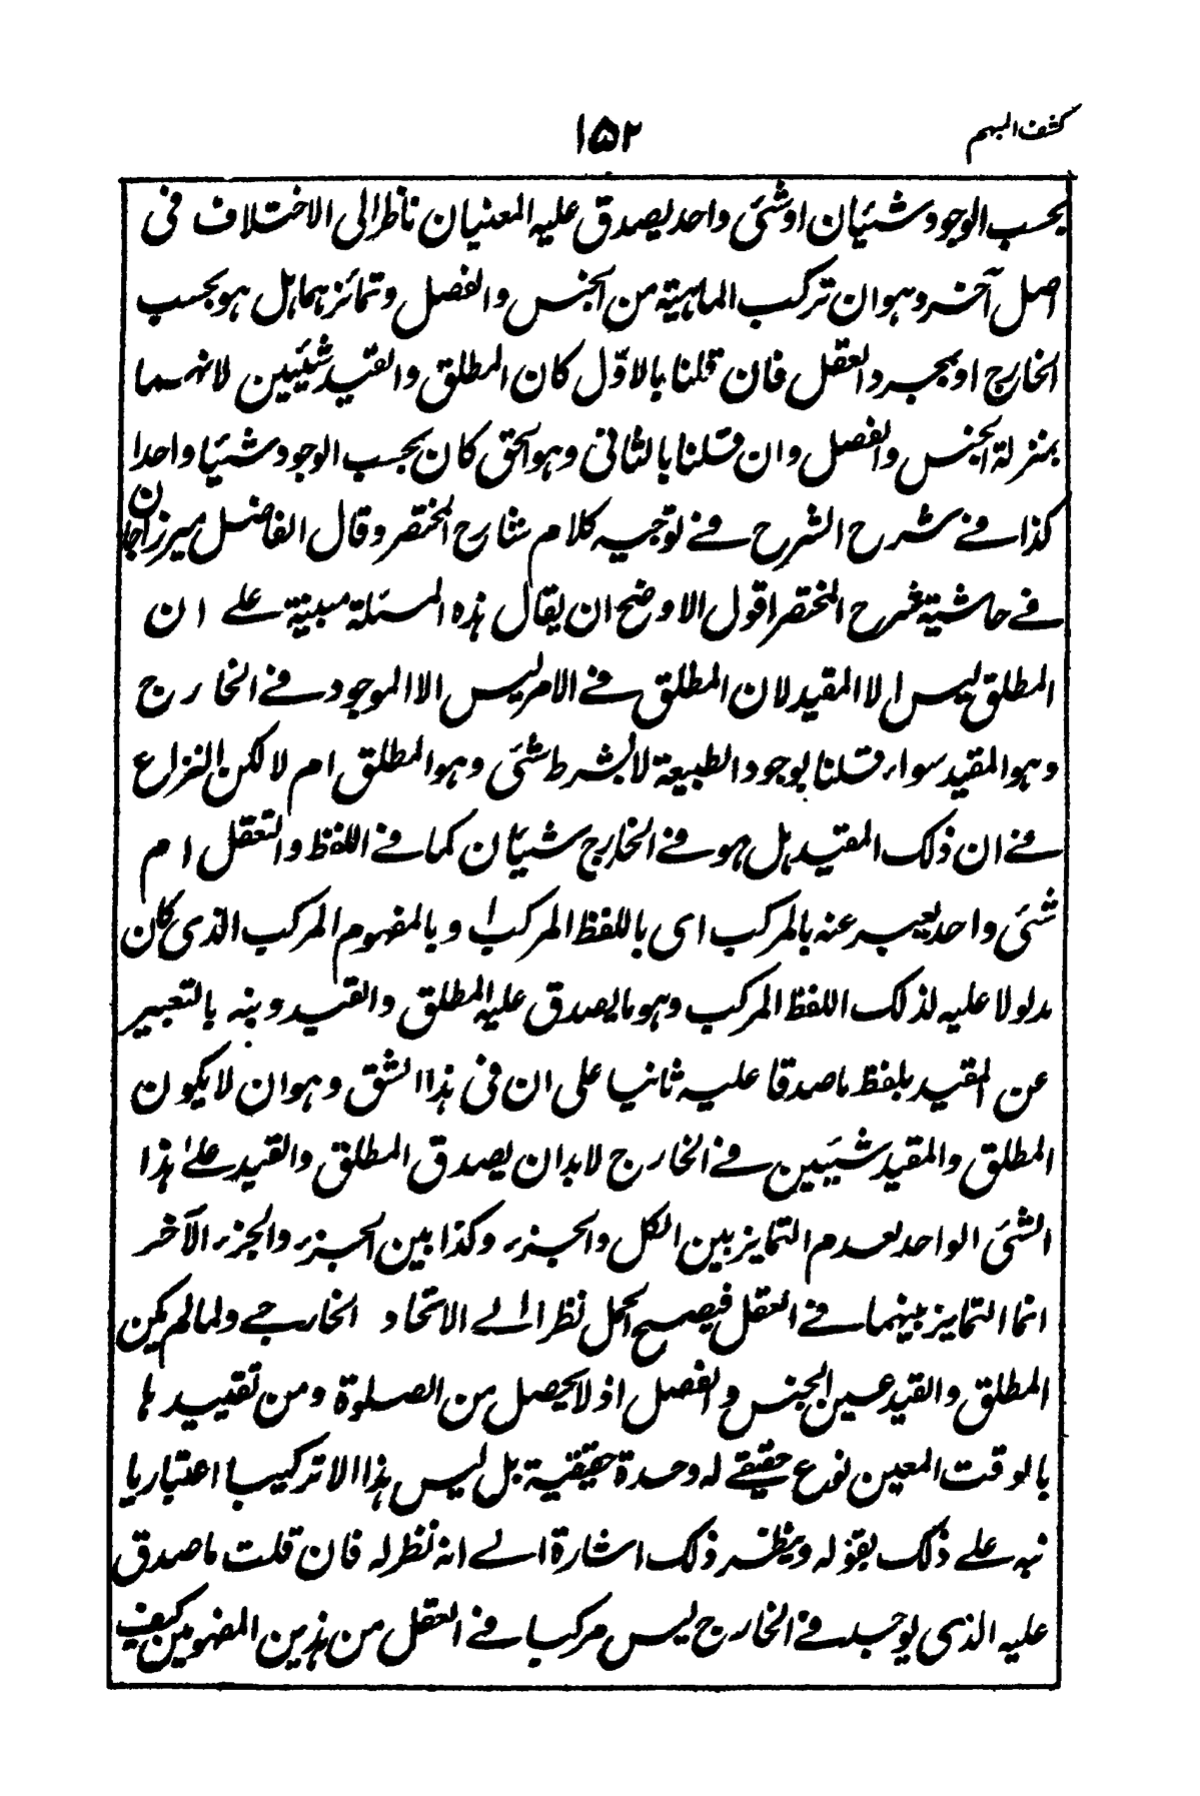 كشف المبهم
١٥٢
بحسب الوجود شئيان او شئى واحد يصدق عليه المعنيان ناظرا لى الاختلاف فى
اصل آخر وهو ان تركب الماهية من الجنس والفصل وتمائزهما هل هو بحسب
الخارج او بمجرد العقل فان قلنا بالاوّل كان المطلق والقيد شئيين لانهما
بمنزلة الجنس والفصل وان قلنا بالثانى وهو الحق كان بحسب الوجود شئيا واحدا
كذا فے شرح الشرح فے توجيه كلام شارح المختصر وقال الفاضل ميرزاجان
فے حاشية شرح المختصر اقول الاوضح ان يقال هذه المسئلة مبنية علے ان
المطلق ليس الا المقيد لان المطلق فے الامر ليس الا الموجود فے الخارج
وهو المقيد سواء قلنا بوجود الطبيعة لا بشرط شئى وهو المطلق ام لا لكن النزاع
فے ان ذلك المقيد هل هو فے الخارج شيئان كما فے اللفظ والتعقل ام
شئى واحد يعبر عنه بالمركب اى باللفظ المركب وبالمفهوم المركب الذى كان
مدلولا عليه لذلك اللفظ المركب وهو ما يصدق عليه المطلق والقيد ونبه بالتعبير
عن المقيد بلفظ ما صدقا عليه ثانيا على ان فى هذا الشق وهو ان لا يكون
المطلق والمقيد شيئيين فے الخارج لابد ان يصدق المطلق والقيد علے هذا
الشئ الواحد لعدم التمايز بين الكل والجزء وكذا بين الجزء والجزء الآخر
انما التمايز بينهما فے العقل فيصح الحمل نظرا الے الاتحاد الخارجے ولما لم يكن
المطلق والقيد عين الجنس والفصل اذ لا يحصل من الصلوة ومن تقييدها
بالوقت المعين نوع حقيقے له وحدة حقيقية بل ليس هذا الا تركيبا اعتباريا
نبه علے ذلك بقوله ونظر ذلك اشارة الے انه نظر له فان قلت ما صدق
عليه الذى يوجد فے الخارج ليس مركبا فے العقل من هذين المفهومين كيف